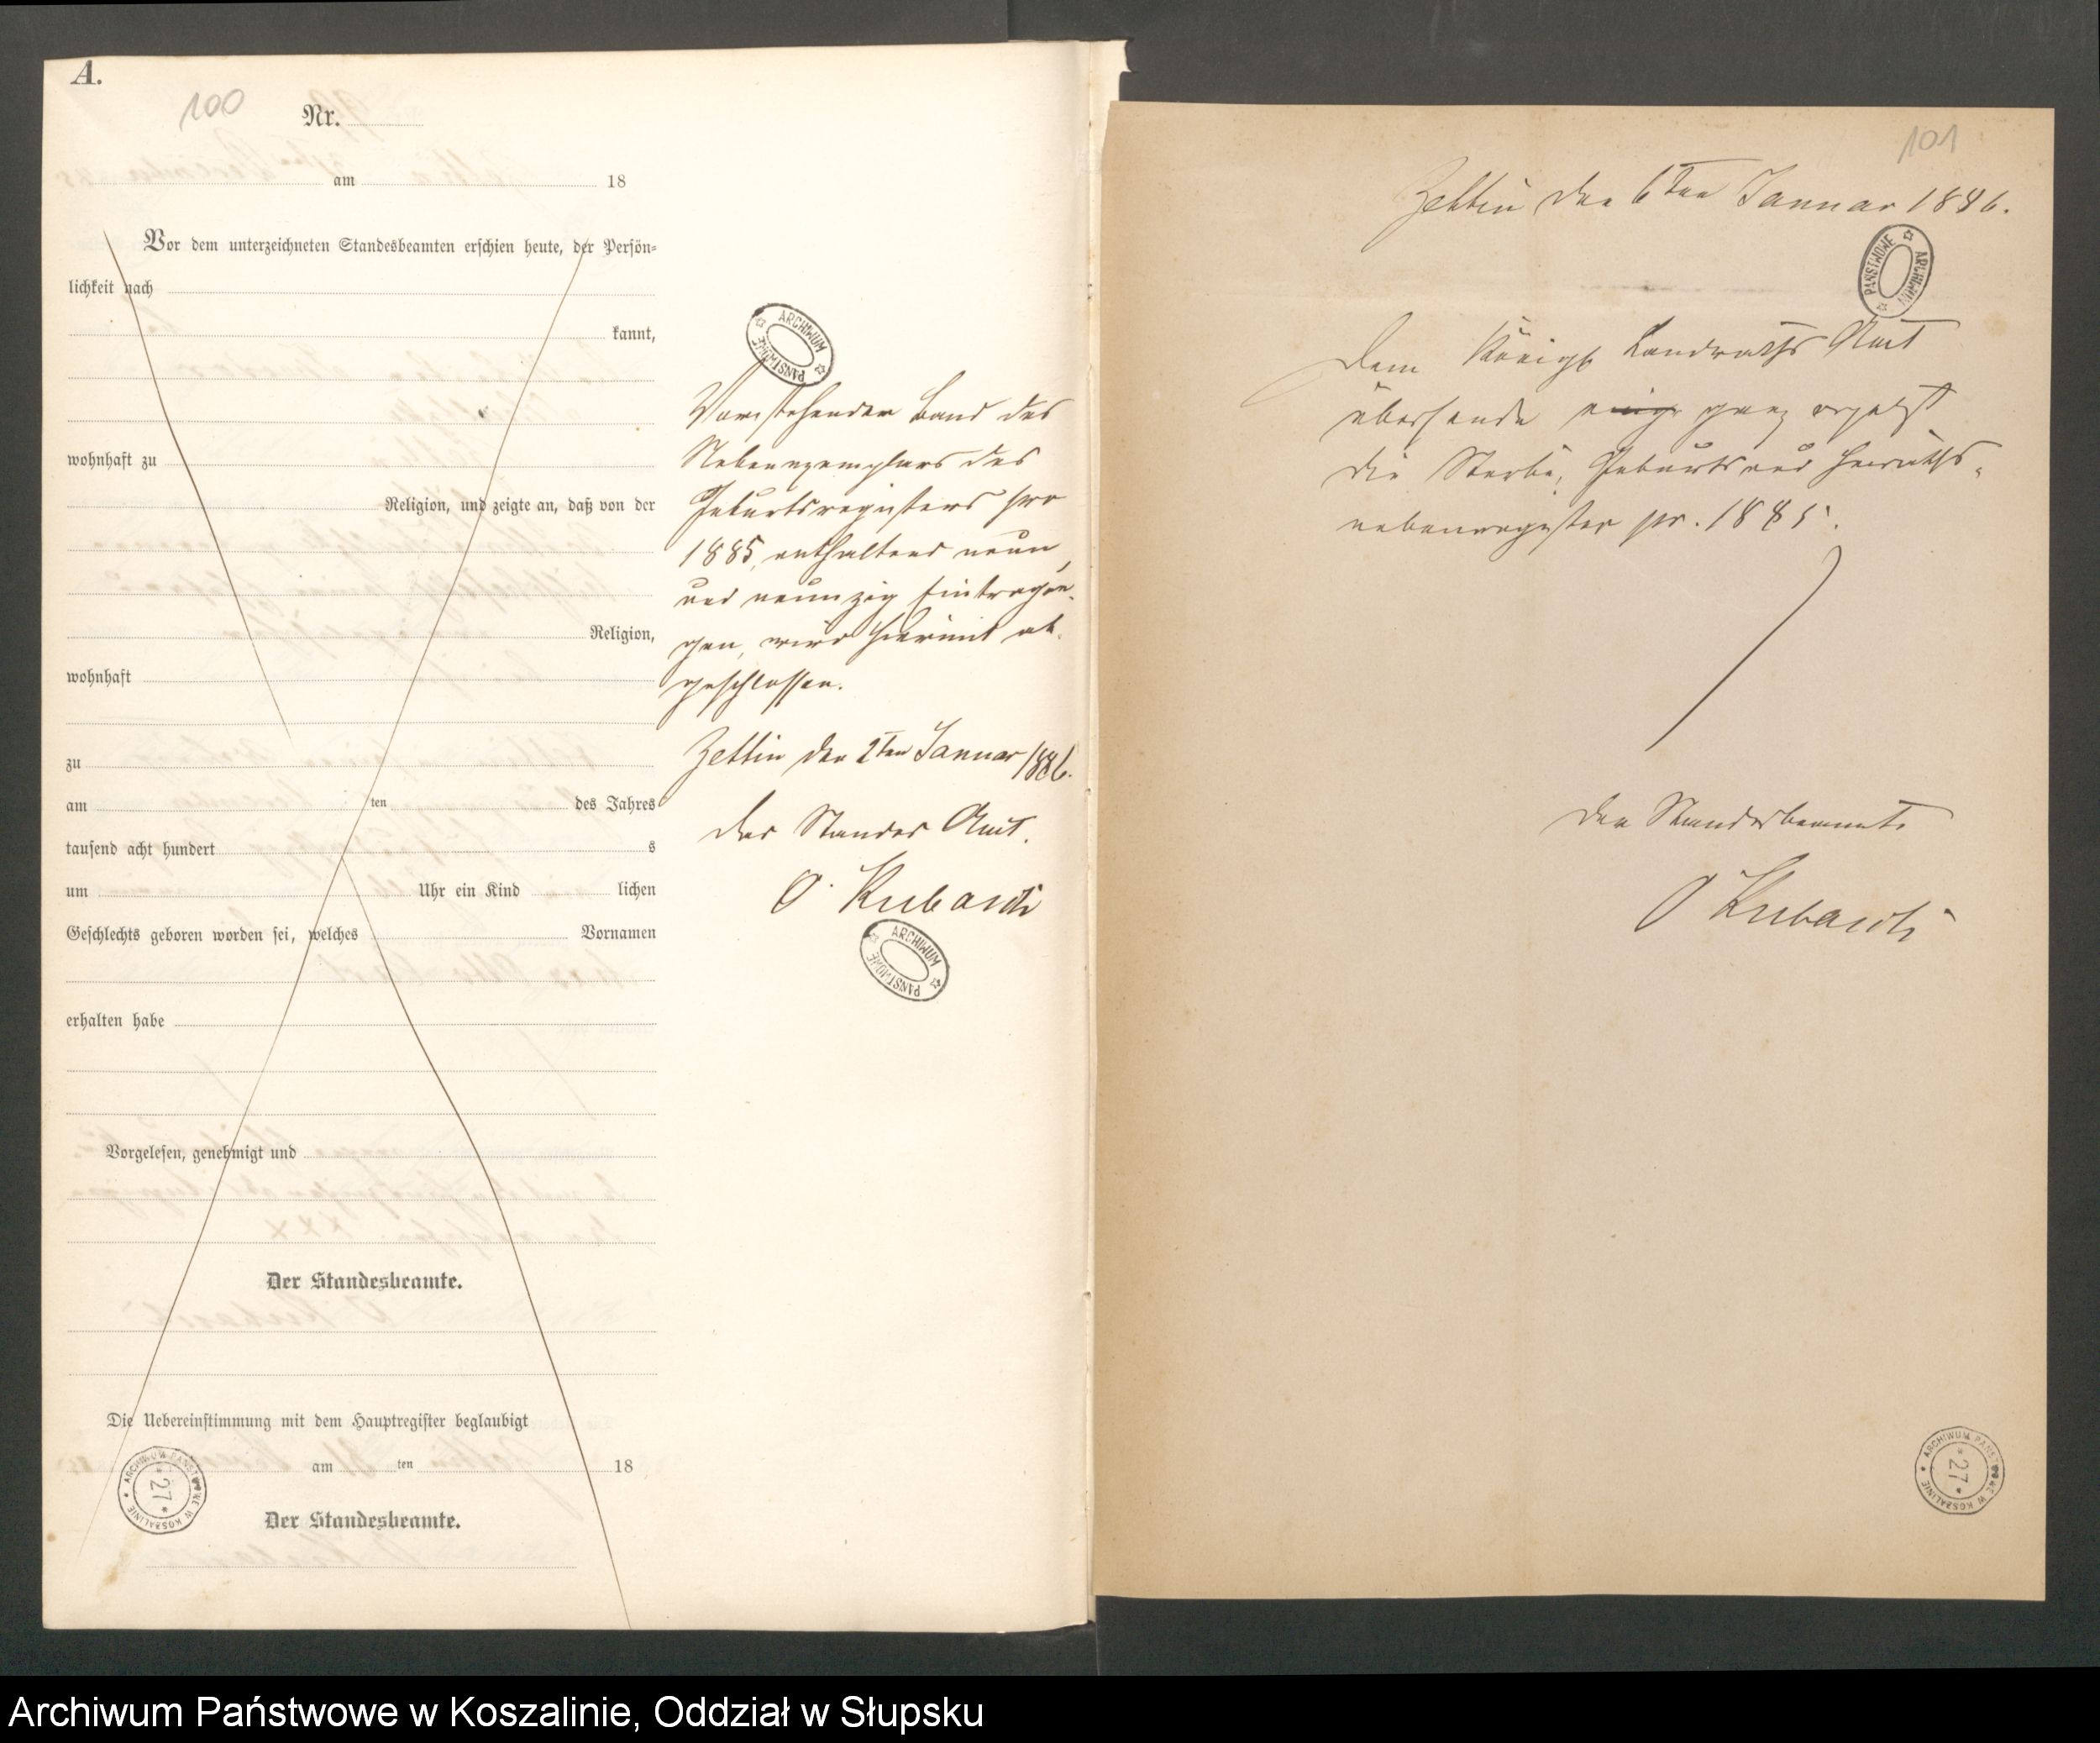 A.
100
Nr.
am 18
Vor dem unterzeichneten Standesbeamten erschien heute, der Persön=
lichkeit nach
kannt,
wohnhaft zu
Religion, und zeigte an, daß von der
Religion,
wohnhaft
zu
am ten des Jahres
tausend acht hundert s
um Uhr ein Kind lichen
Geschlechts geboren worden sei, welches Vornamen
erhalten habe
Vorgelesen, genehmigt und
Der Standesbeamte.
Die Uebereinstimmung mit dem Hauptregister beglaubigt
am ten 18
Der Standesbeamte.
ARCHIWUM PAŃSTWOWE W KOSZALINIE
27
ARCHIWUM PAŃSTWOWE
Vorstehender Band des
Nebenexemplars des
Geburtsregisters pro
1885, enthaltend neun
und neunzig Eintragun-
gen, wird hiermit ab-
geschlossen.
Zettin den 2ten Januar 1886.
Das Standes Amt.
O Kubasch
ARCHIWUM PAŃSTWOWE
101
Zettin den 6ten Januar 1886.
ARCHIWUM PAŃSTWOWE
Dem Königl Landraths Amt
übersende ganz ergebenst
die Sterbe, Geburts und Heiraths-
nebenregister pr. 1885.
Der Standesbeamte
O Kubasch
ARCHIWUM PAŃSTWOWE W KOSZALINIE
27
Archiwum Państwowe w Koszalinie, Oddział w Słupsku